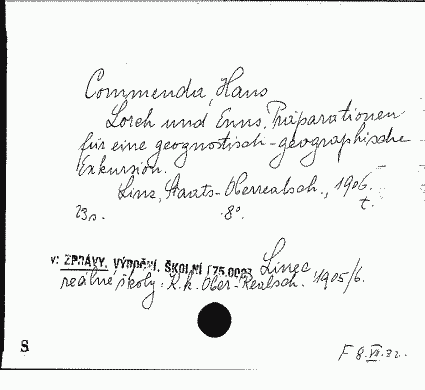 Commenda, Hans
Lorch und Enns. Präparationen
für eine geognostisch-geographische
Exkursion.
Linz, Staats-Oberrealsch., 1906.
23 s. 8° t.
v: ZPRÁVY, VÝROČNÍ, ŠKOLNÍ Linec
reálné školy: K.k. Ober-Realsch. 1905/6.
S
F 8.VII.32.